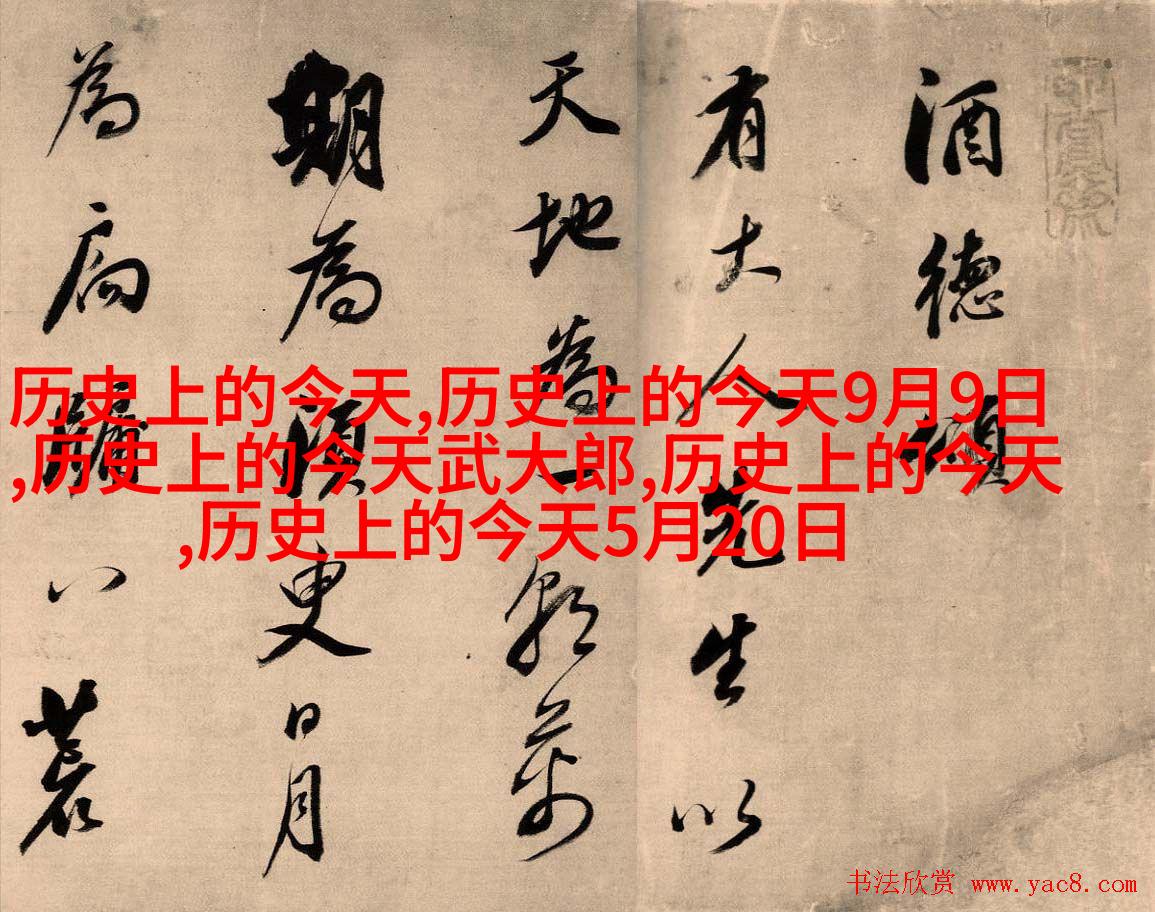 酒德頌
有大人先生以
天地為一朝萬
期為須臾日月
為扃牖八荒
历史上的今天,历史上的今天9月9日
,历史上的今天武大郎,历史上的今天
,历史上的今天5月20日
书法欣赏 www.yac8.com